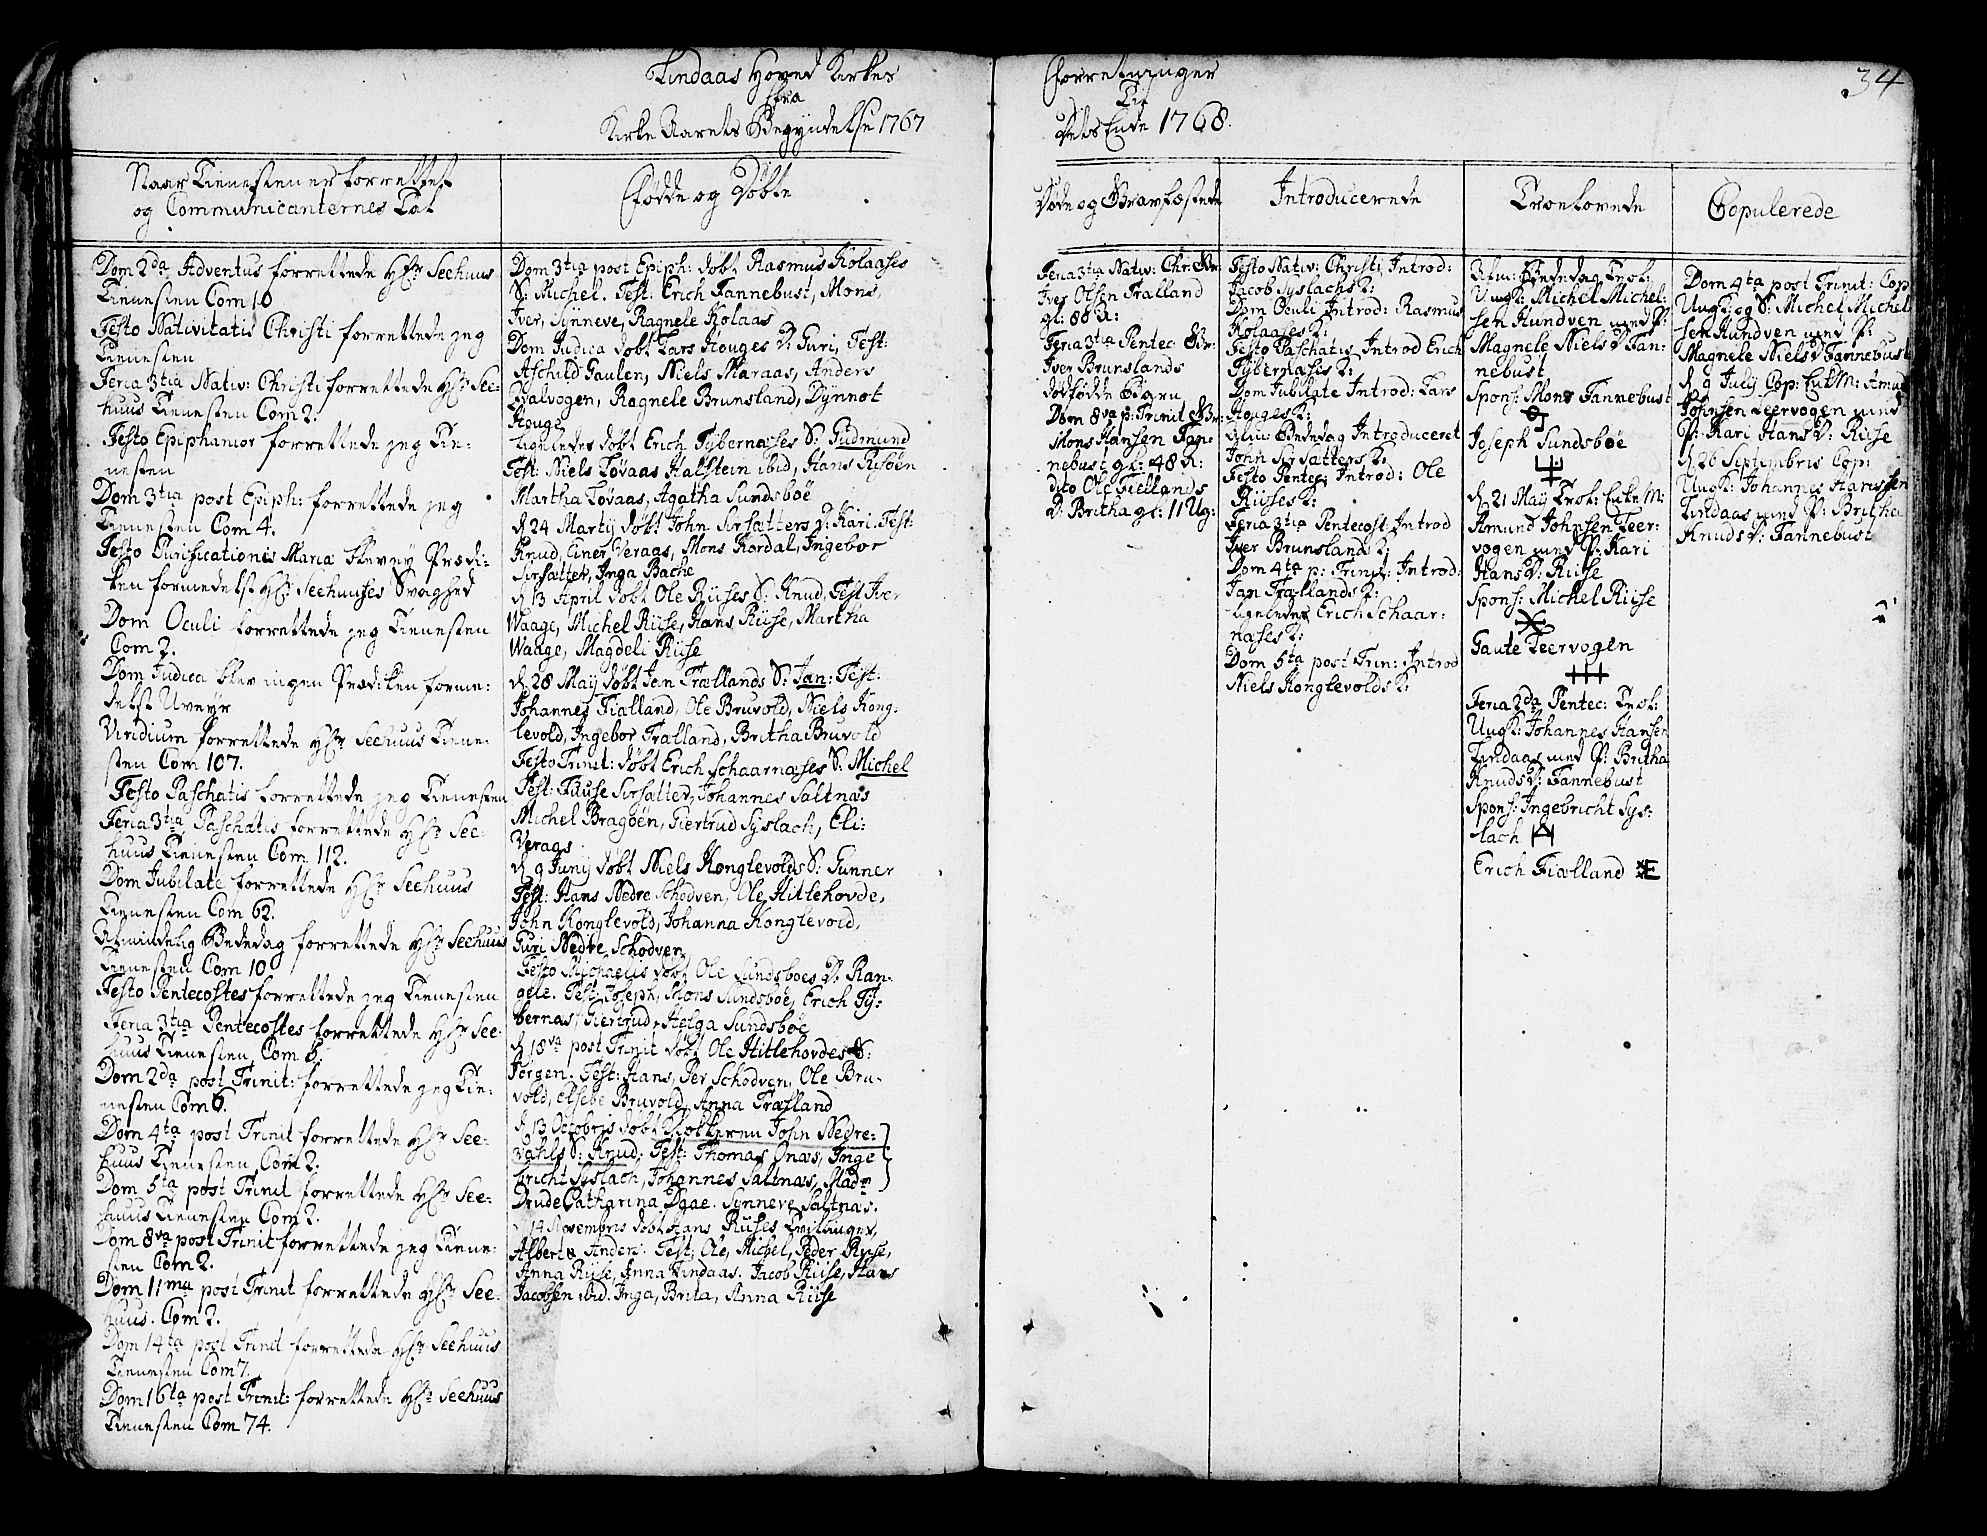 Lindaas Hoved Kirkes
fra
Kirke Aarets Begyndelse 1767
Naar Tienesten er forrettet
og Communicanternes Tal
Dom 2da Adventus forrettede Hr Seehuus
Tienesten Com 10
Festo Nativitatis Christi forrettede jeg
Tienesten
Feria 3tia Nativ: Christi forrettede Hr See-
huus Tienesten Com 2.
Festo Epiphanior forrettede jeg Tie-
nesten
Dom 3tia post Epiph: forrettede jeg
Tienesten Com 4.
Festo Purificationis Mariæ blev ey Prædi-
ken formedelst Hr Seehuuses Svaghed
Dom Oculi forrettede jeg Tienesten
Com 2.
Dom Judica blev ingen Prædiken forme:
delst Uveyr
Viridium forrettede Hr Seehuus Tiene:
sten Com 107.
Festo Paschatis forrettede jeg Tienesten
Feria 3tia Paschatis forrettede Hr See:
huus Tienesten Com 112.
Dom Jubilate forrettede Hr Seehuus
Tienesten Com 62.
Almindelig Bededag forrettede Hr Seehuus
Tienesten Com 10
Festo Pentecostes forrettede jeg Tienesten
Feria 3tia Pentecostes forrettede Hr See-
huus Tienesten Com 6.
Dom 2da post Trinit: forrettede jeg Tie-
nesten Com 6.
Dom 4ta post Trinit forrettede Hr See-
huus Tienesten Com 2.
Dom 5ta post Trinit forrettede Hr See-
huus Tienesten Com 2.
Dom 8va post Trinit forrettede jeg Tiene-
sten Com 2.
Dom 11ma post Trinit forrettede Hr See-
huus. Com 2.
Dom 14ta post Trinit forrettede Hr Seehuus
Tienesten Com 7.
Dom 16ta post Trinit: forrettede Hr Seehuus
Tienesten Com 74.
Fødde og Døbte
Dom 3tia post Epiph: døbt Rasmus Kolaases
S: Michel. Test: Erich Fannebust, Mons,
Iver, Synneve, Ragnele Kolaas
Dom Judica døbt Lars Houges D: Guri, Test:
Aschild Gaulen, Niels Maraas, Anders
Dalvogen, Ragnele Brunsland, Dynnot
Houge
Ligeledes døbt Erich Tybernæses S: Gudmund
Test: Niels Lovaas Halstein ibid, Hans Risøen
Martha Lovaas, Agatha Sundsbøe
d 24 Martij døbt John Sirsætters D: Kari. Test:
Knud, Einer Veraas, Mons Kordal, Ingebor
Sirsætter, Inga Bache
d 13 April døbt Ole Riises S: Knud, Test Iver
Waage, Michel Riise, Hans Riise, Martha
Waage, Magdeli Riise
d 28 Maij døbt Jan Trællands S: Jan: Test:
Johannes Fialland, Ole Bruvold, Niels Kong-
levold, Ingebor Trælland, Britha Bruvold
Festo Trinit: døbt Erich Schaarnæses S: Michel
Test: Tuuse Sirsætter, Johannes Saltnæs
Michel Bragøen, Giertrud Syslach, Eli:
Veraas
d 9 Junij døbt Niels Konglevolds S: Gunner
Test: Hans Nedre Schodven, Ole Hitlehovde,
John Konglevold, Johanna Konglevold,
Guri Nedre Schodven
Festo Michaelis døbt Ole Sundsboes D: Ran-
gele. Test: Joseph, Mons Sundsbøe, Erich Ty-
bernæs, Giertrud, Helga Sundsbøe
d 18va post Trinit døbt Ole Hitlehovdes S:
Jørgen. Test: Hans, Per Schodven, Ole Bru-
vold, Elsebe Bruvold, Anna Trælland
d 13 Octobris døbt Klokkeren John Nedre-
vahls S: Knud. Test: Thomas Onæs, Inge
bricht Syslach, Johannes Saltnæs, Madm
Drude Catharina Daae. Synneve Saltnæs.
14 Novembris døbt Hans Riises Tvillinger,
Albert & Anders. Test; Ole, Michel, Peder Riise,
Anna Riise, Anna Lindaas. Jacob Riise, Hans
Jacobsen ibid. Inga, Brita, Anna Riise
Forretninger
Til
Dets Ende 1768.
34
Døde og Gravfæstede
Feria 3tia Nativ: Chr: Gr:
Iver Olsen Trælland
gl: 88 A:
Feria 3tia Pentec Gr:
Iver Brunslands
dødfødde Barn
Dom 8va p: Trinit Gr:
Mons Hansen Fan-
nebust gl: 48 A:
dito Ole Fiellands
D: Britha gl: 11 Ug:
Introducerede
Festo Nativ: Christi Introd:
Jacob Syslachs K:
Dom Pauli Introd: Rasmus
Kolaases K:
Festo Paschatis Introd Erich
Tybernæses K:
Dom Jubilate Introd: Lars
Houges K:
Alm: Bededag Introduceret
John Sirsætters K:
Festo Pentec: Introd: Ole
Riises K:
Feria 3tia Pentecost: Introd
Iver Brunslands K:
Dom 4ta p: Trinit: Introd:
Jan Trællands K:
Ligeledes Erich Schaar-
næses K:
Dom 5ta post Trin: Introd
Niels Konglevolds K:
Troelovede
Alm: Bededag Trol:
Ungk: Michel Michel:
sen Hundven med P:
Magnele Niels D Fan:
nebust
Spons: Mons Fannebust
Joseph Sundsbøe
d 21 Maij Trol: EnkeM:
Amund Johnsen Leer-
vogen med P: Kari
Hans D: Riise
Spons: Michel Riise
Gaute Leervogen
Feria 2da Pentec: Trol:
Ungk: Johannes Hansen
Lindaas med P: Britha
Knuds D: Fannebust
Spons: Ingebricht Sys:
lach
Erich Fiælland
Copulerede
Dom 4ta post Trinit: Cop
Ungk: og S: Michel Michel
sen Hundven med P:
Magnele Niels D Fannebust
d 9 Julij Cop: EnkM: Amund
Johnsen Leervogen med
P: Kari Hans D: Riise
d 26 Septembris Cop:
Ungk: Johannes Hanssen
Lindaas med P: Britha
Knuds D: Fannebust